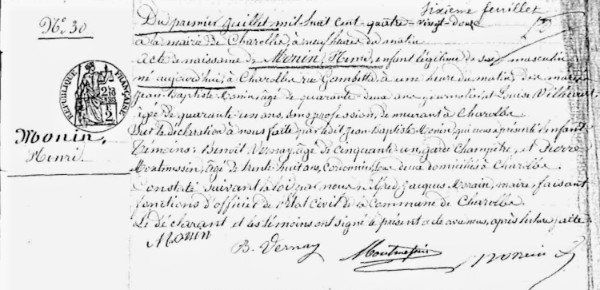 Sixième feuillet
N° 30
Du premier juillet mil-huit cent-quatre-vingt-douze
à la mairie de Charolles, à neuf heures du matin
Acte de naissance de Monin, Henri, enfant légitime de sexe masculin
né aujourd'hui, à Charolles rue Gambetta à une heure du matin, de
Jean-Baptiste Monin âgé de quarante deux ans, journalier et Louise
âgée de quarante-un ans, sans profession, demeurant à Charolles
Sur la déclaration à nous faite par ledit Jean-Baptiste Monin qui nous a présenté l'enfant
Témoins: Benoît Vernay, âgé de cinquante-un, garde Champêtre, et Pierre
Montmessin, âgé de trente-huit ans, tous deux domiciliés à Charolles
Constaté suivant la loi par nous Jacques maire, faisant
fonctions d'officier de l'Etat Civil de la Commune de Charolles
Le déclarant et les témoins ont signé le présent acte avec nous, après lecture faite
RÉPUBLIQUE FRANÇAISE
Monin,
Henri.
Monin
B. Vernay
Montmessin